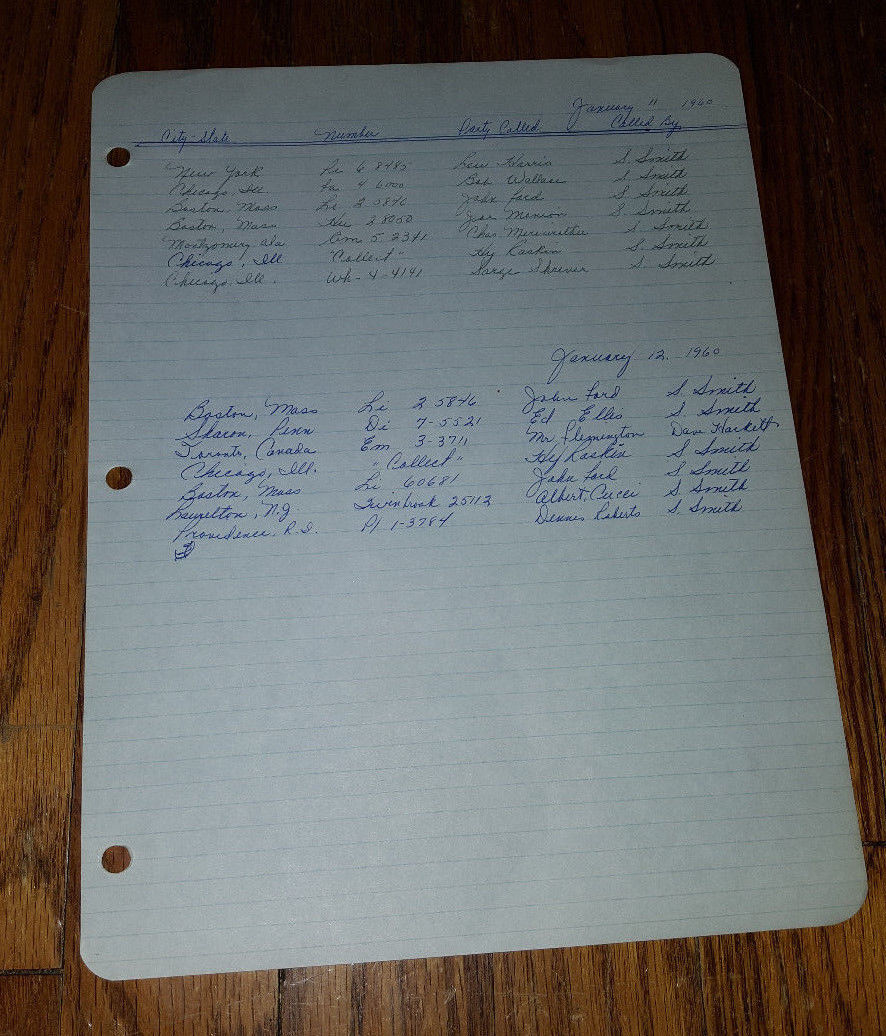 January 11 1960
City-State Number Party Called Called By
New York Li 6 8485 Lou Harris S. Smith
Chicago, Ill. Fa 4 6000 Bob Wallace S. Smith
Boston, Mass Li 2 5846 John Ford S. Smith
Boston, Mass Hu 2 8050 Jean Mannion S. Smith
Montgomery Ala Am 5 2341 Chas. Meriwether S. Smith
Chicago, Ill "Collect" Hy Raskin S. Smith
Chicago, Ill. Wh-4-4141 Sarge Shriver S. Smith
January 12, 1960
Boston, Mass Li 2 5846 John Ford S. Smith
Sharon, Penn Di 7-5521 Ed Elles S. Smith
Toronto, Canada Em 3-3711 Mr. Flemington Dave Hackett
Chicago, Ill. "Collect" Hy Raskin S. Smith
Boston, Mass Li 60681 John Ford S. Smith
N.J. Twinbrook 25112 Albert Cucci S Smith
Providence, R.I. Pl 1-3784 Dennis Roberts S. Smith